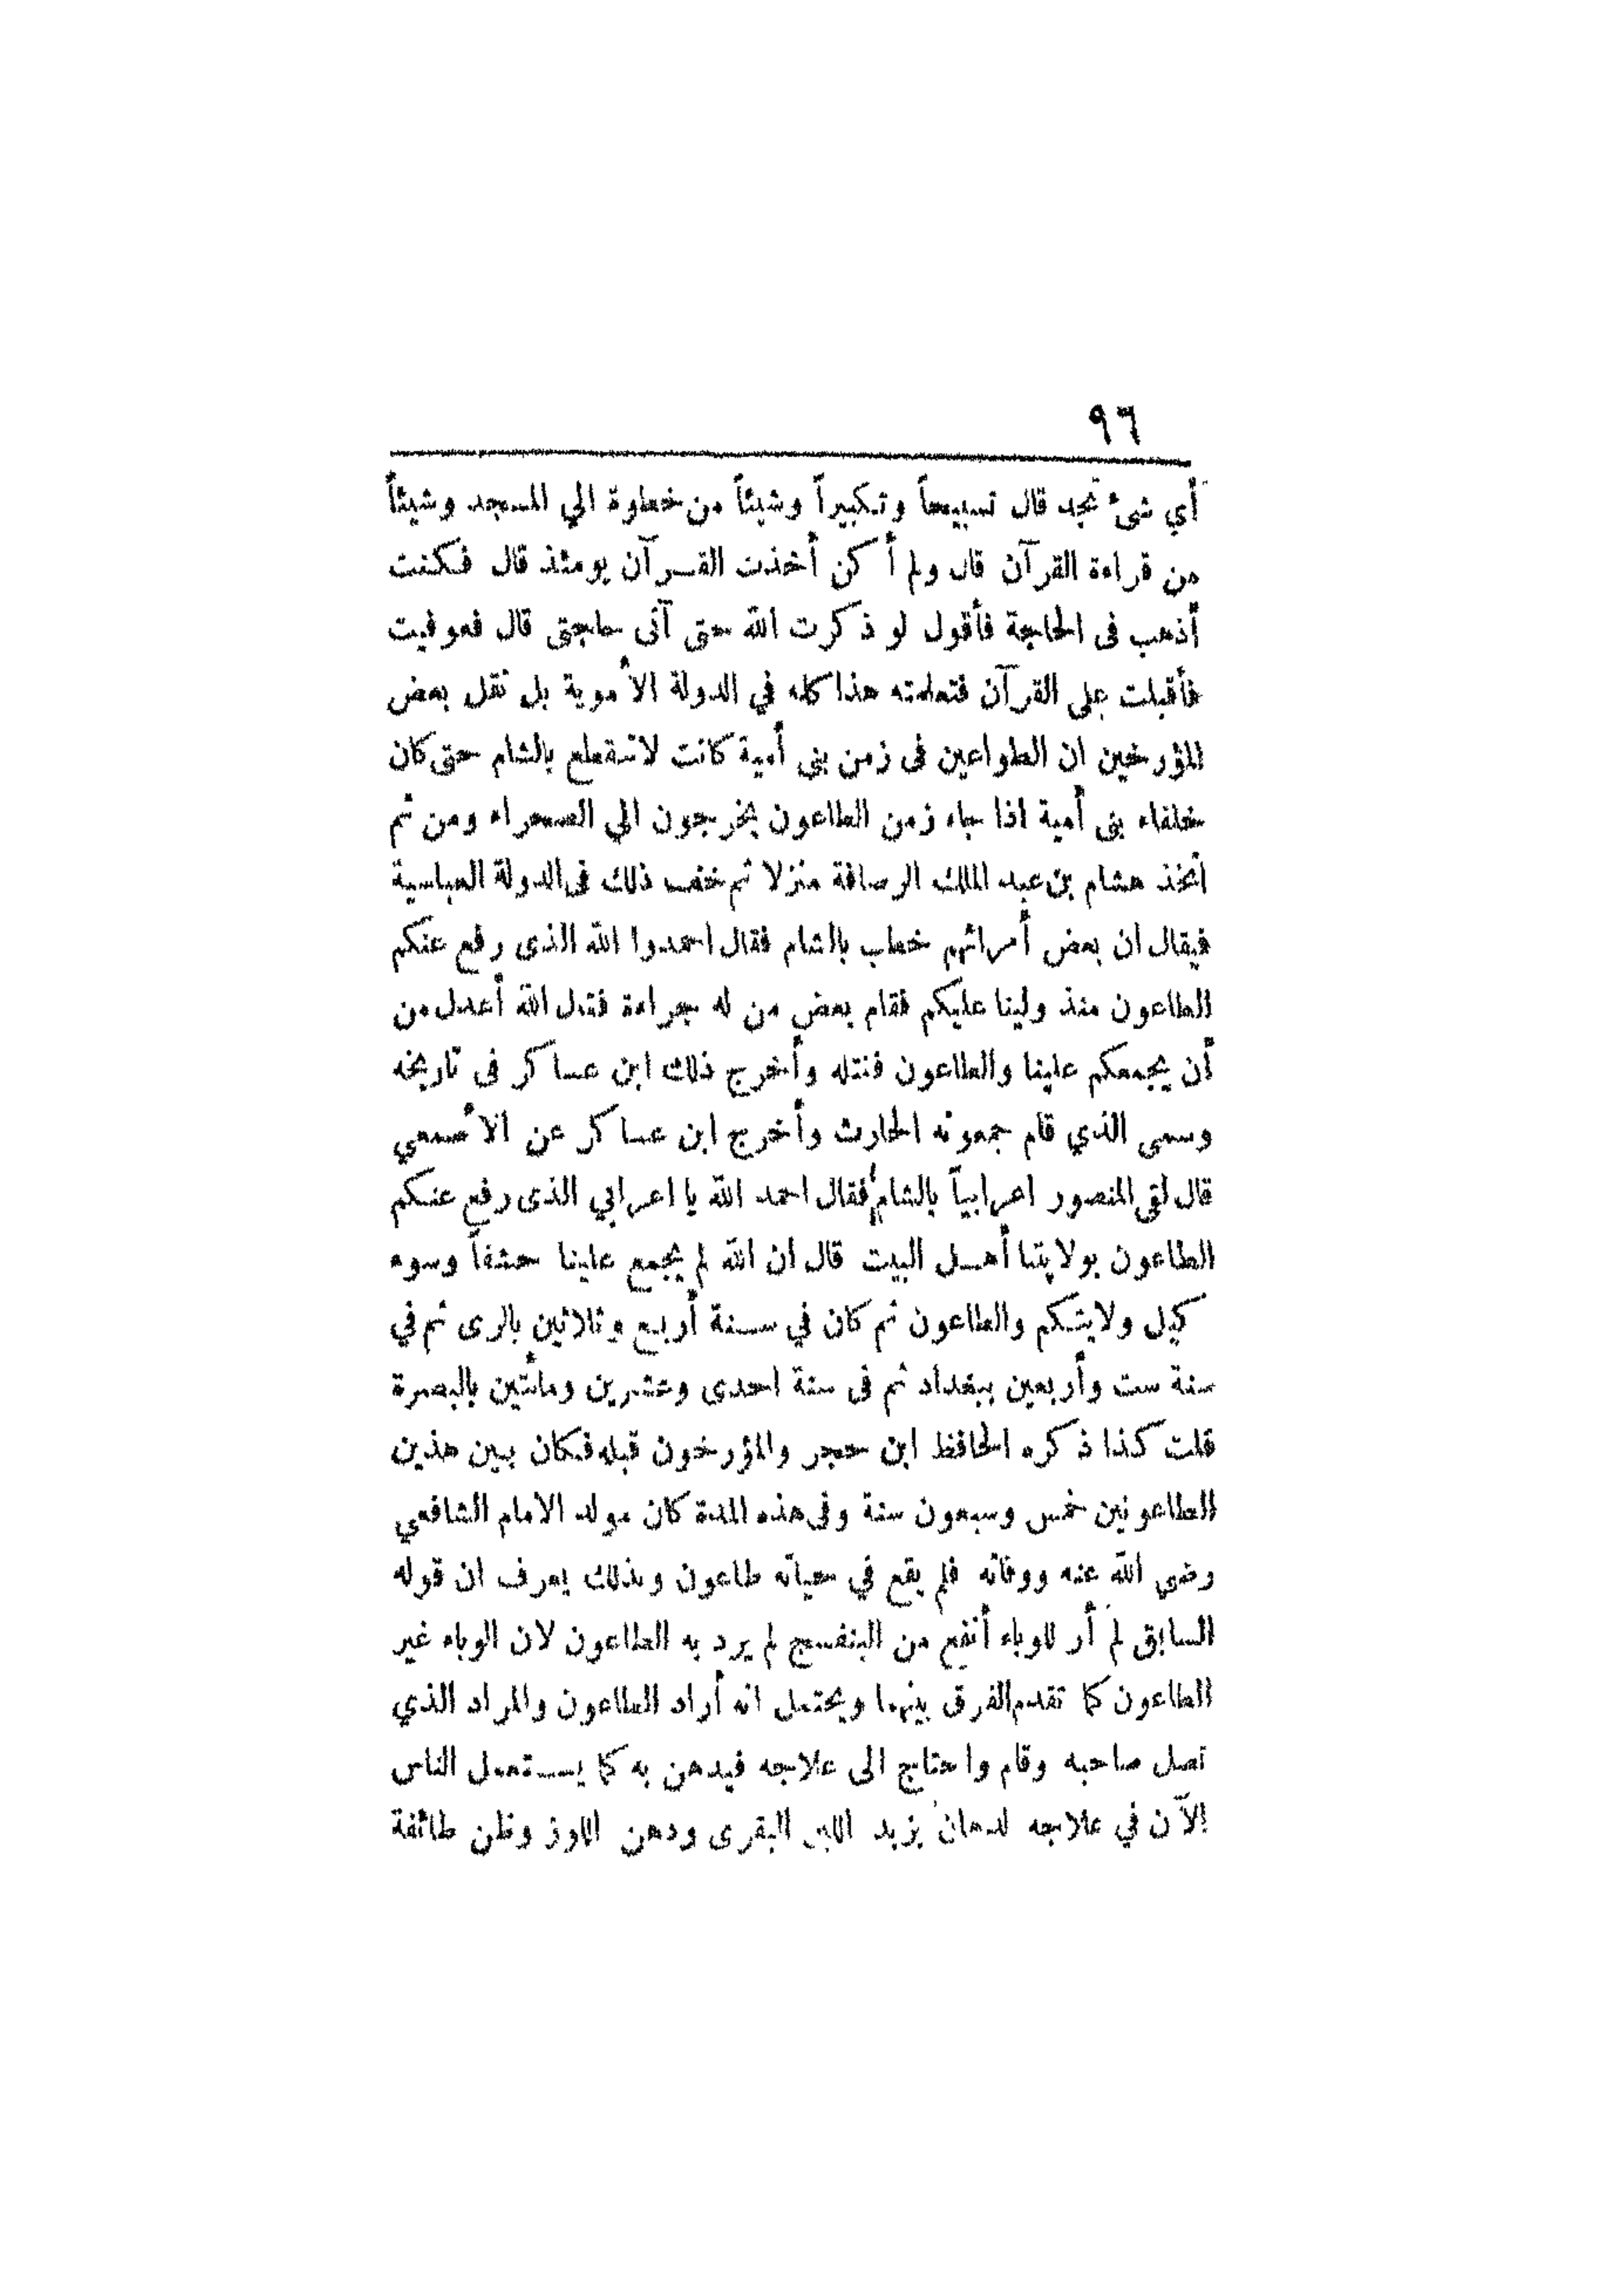 ٩٦
أي شئ تجد قال تسبيحاً وتكبيراً وشيئاً من خطوة الي المسجد وشيئاً
من قراءة القرآن قال ولم أكن أخذت القرآن يومئذ قال فكنت
أذهب فى الحاجة فأقول لو ذكرت الله حتى آتى حاجتى قال فعوفيت
فأقبلت على القرآن فتعلمته هذا كله في الدولة الأموية بل نقل بعض
المؤرخين ان الطواعين فى زمن بنى أمية كانت لا تنقطع بالشام حتى كان
خلفاء بنى أمية اذا جاء زمن الطاعون يخرجون الي الصحراء ومن ثم
اتخذ هشام بن عبد الملك الرصافة منزلا ثم خف ذلك فى الدولة العباسية
فيقال ان بعض أمرائهم خطب بالشام فقال احمدوا الله الذى رفع عنكم
الطاعون منذ ولينا عليكم فقام بعض من له جراءة فقال الله أعدل من
أن يجمعكم علينا والطاعون فقتله وأخرج ذلك ابن عساكر فى تاريخه
وسمى الذي قام جمعونه الحارث وأخرج ابن عساكر عن الأصمعي
قال لقى المنصور اعرابياً بالشام فقال احمد الله يا اعرابي الذى رفع عنكم
الطاعون بولايتنا أهل البيت قال ان الله لم يجمع علينا حشفاً وسوء
كيل ولايتكم والطاعون ثم كان في سنة أربع وثلاثين بالرى ثم في
سنة ست وأربعين ببغداد ثم فى سنة احدى وعشرين ومائتين بالبصرة
قلت كذا ذكره الحافظ ابن حجر والمؤرخون قبله فكان بين هذين
الطاعونين خمس وسبعون سنة وفى هذه المدة كان مولد الامام الشافعي
رضى الله عنه ووفاته فلم يقع في حياته طاعون وبذلك يعرف ان قوله
السابق لم أر للوباء أنفع من البنفسج لم يرد به الطاعون لان الوباء غير
الطاعون كما تقدم الفرق بينهما ويحتمل انه أراد الطاعون والمراد الذي
نصل صاحبه وقام واحتاج الى علاجه فيدهن به كما يستعمل الناس
الآن في علاجه لدهان بزبد اللبن البقرى ودهن اللوز وظن طائفة